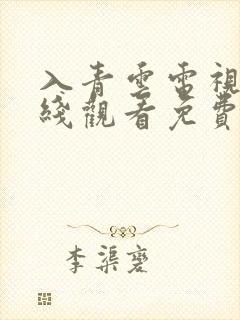 入青雲電視
綫觀看免費
李渠蒏